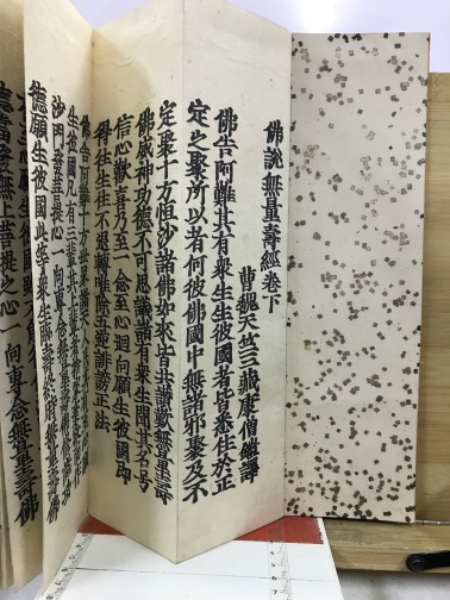 佛説無量壽經卷下
曹魏天竺三藏康僧鎧譯
佛告阿難其有衆生生彼國者皆悉住於正
定之聚所以者何彼佛國中無諸邪聚及不
定聚十方恒沙諸佛如來皆共讚歎無量壽
佛威神功德不可思議諸有衆生聞其名号
信心歡喜乃至一念至心迴向願生彼國即
得往生住不退轉唯除五逆誹謗正法
佛告阿難十方世界諸天人民其有至心願
生彼國凡有三輩其上輩者捨家棄欲而作
沙門發菩提心一向專念無量壽佛修諸功
德願生彼國此等衆生臨壽終時無量壽佛
心願生彼國
德當發無上菩提之心一向專念無量壽佛